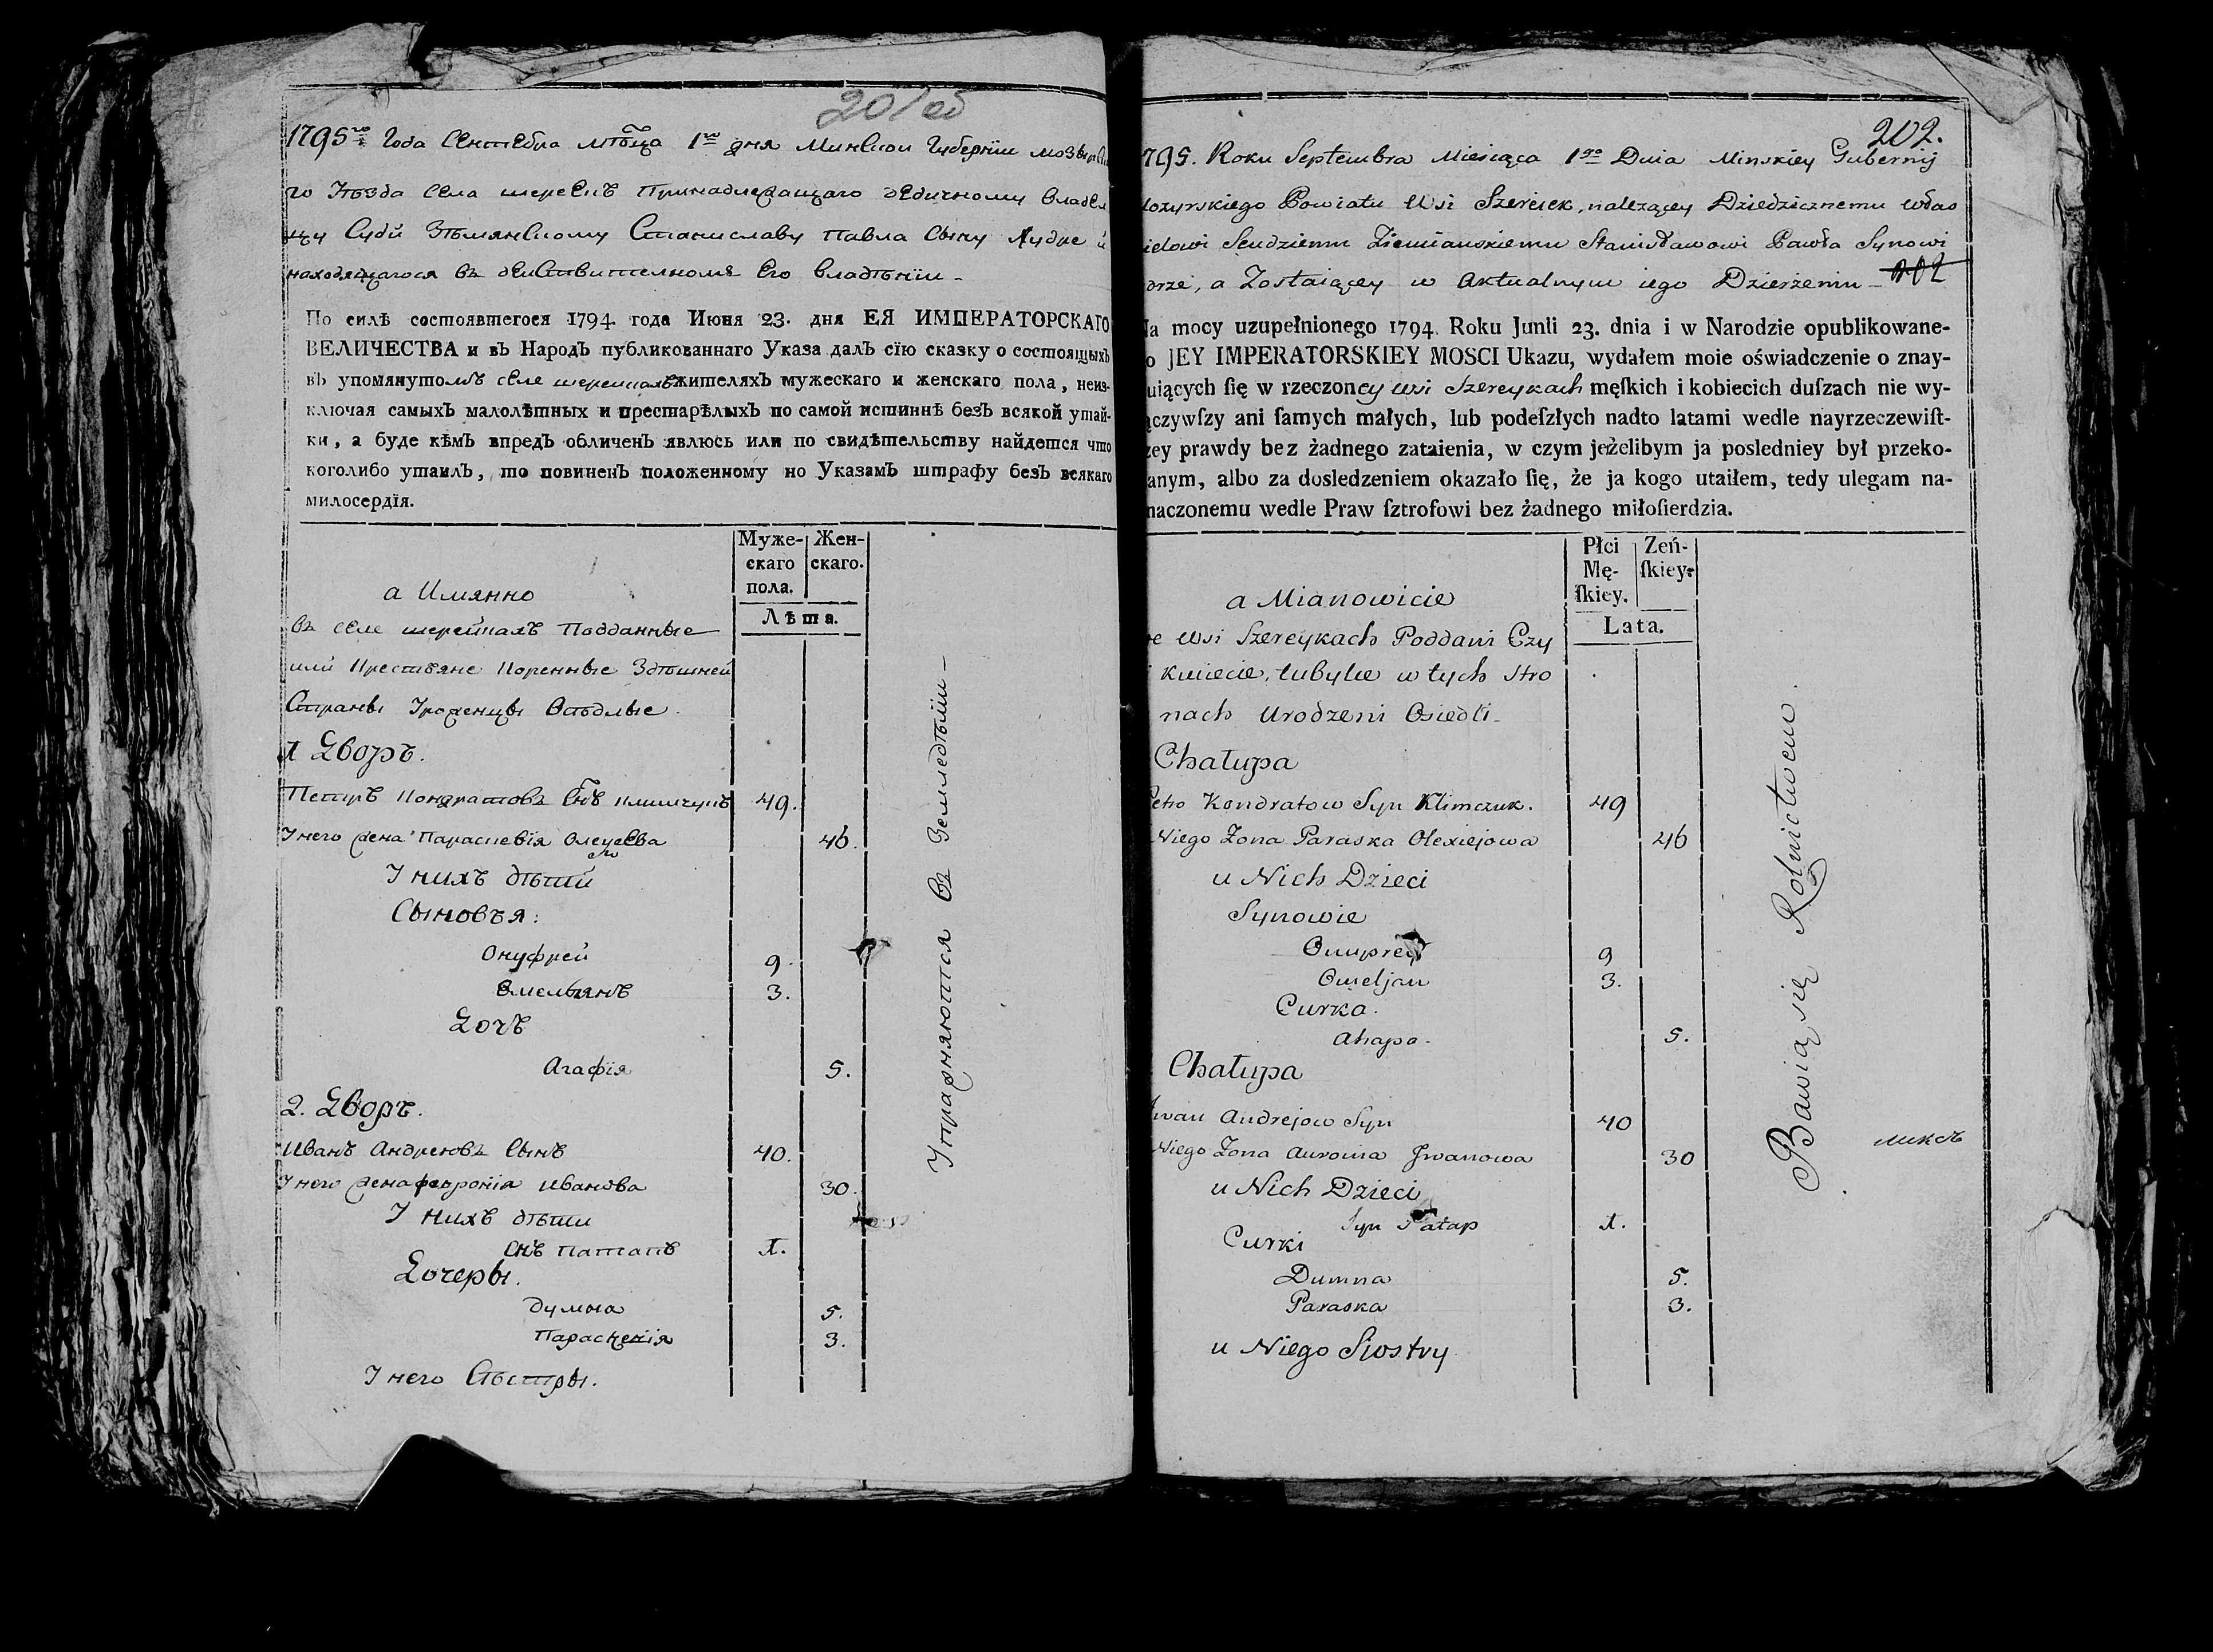 201об
1795го Года Сентебра мтьца 1го дня Минскои Губернїи
го Утьзда села шереекъ принадлежащаго дедичному
Судй Зтьмянскому Станиславу Павла Сыну Яудре й
находящагося въ действителномъ его владтьнїи –
По силѣ состоявшегося 1794. года Июня 23. дня ЕЯ ИМПЕРАТОРСКАГО
ВЕЛИЧЕСТВА и въ Народъ публикованнаго Указа далъ сїю сказку о состоящыхъ
въ упомянутомъ селе шерейкахъ жителяхъ мужескаго и женскаго пола, неиз-
ключая самыхъ малолѣтныхъ и престарѣлыхъ по самой истиннѣ безъ всякой утай-
ки, а буде кѣмъ впредъ обличенъ явлюсь или по свидѣтельству найдется что
коголибо утаилъ, то повиненъ положенному но Указамъ штрафу безъ всякаго
милосердїя.
Муже-
скаго
пола.
Жен-
скаго.
Лѣта.
а Имянно
въ селе шерейкахъ Подданные
или Крестьяне Коренные Здтьшней
Страны Уроженцы Осѣдлые.
1 Дворъ.
Петръ Кондратовъ Снъ климчукъ 49.
У него жена Параскевія Олеѯеева 46.
У нихъ дѣтй
Сыновъя:
Онуфрей 9.
Омельянъ 3.
Дочъ
Агафїя 5.
2. Дворъ.
Иванъ Андреювъ Сынъ 40.
У него жена февронїя иванова 30.
У нихъ дѣти
Снъ Патапъ 1.
Дочеры.
Думна 5.
Параскевія 3.
У него Сѣстры.
Упражняются въ Земледѣлїи –
202.
795. Roku Septembra Miesiąca 1go Dnia Minskiey Gubernij
ozyrskiego Powiatu Wsi Szereiek, nalezącey Dziedzicznemu właś
icielowi Sendziemu Ziemianskiemu Stanisławowi Pawła Synowi
drze, a Zostaiącey w Aktualnym iego Dzierżeniu – 202
Na mocy uzupełnionego 1794. Roku Junii 23. dnia i w Narodzie opublikowane-
o JEY IMPERATORSKIEY MOSCI Ukazu, wydałem moie oświadczenie o znay-
uiących ſię w rzeczoney wsi Szereykach męſkich i kobiecich duſzach nie wy-
ączywſzy ani ſamych małych, lub podeſzłych nadto latami wedle nayrzeczewiſt-
zey prawdy bez żadnego zataienia, w czym jeżelibym ja posledniey był przeko-
anym, albo za dosledzeniem okazało ſię, że ja kogo utaiłem, tedy ulegam na-
naczonemu wedle Praw ſztrofowi bez żadnego miłoſierdzia.
Płci
Mę-
ſkiey.
Zeń-
ſkiey.
Lata.
a Mianowicie
e wsi Szereykach Poddani Czy
Kmiecie, tubylce w tych stro
nach Urodzeni Osiedli –
Chałupa
Petro Kondratow Syn Klimczuk. 49
Niego Żona Paraska Olexiejowa 46
u Nich Dzieci
Synowie
Onuprey 9
Omeljan 3.
Curka.
Ahapa – 5.
Chałupa
Iwan Andrejow Syn 40
Niego Żona Auronia Jwanowa 30
u Nich Dzieci
Syn Patap 1.
Curki
Dumna 5.
Paraska 3.
u Niego Siostry
Bawią się Rolnictwem.